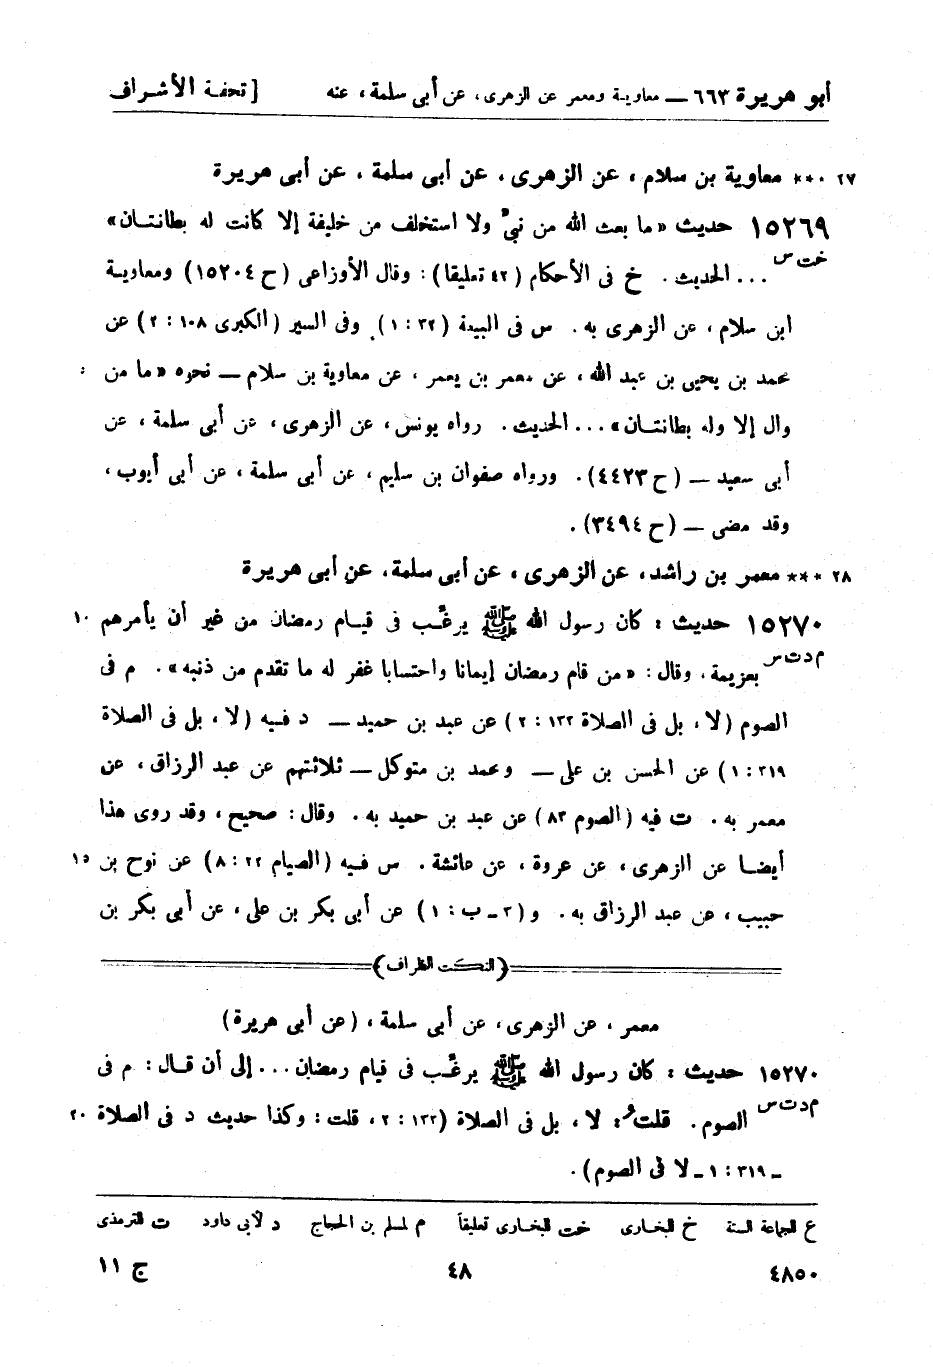 أبو هريرة ٦٦٣ — معاوية ومعمر عن الزهرى، عن أبى سلمة، عنه [ تحفة الأشراف
٢٧ ** معاوية بن سلام ، عن الزهرى ، عن أبى سلمة ، عن أبى هريرة
١٥٢٦٩ حديث « ما بعث الله من نبىّ ولا استخلف من خليفة إلا كانت له بطانتـان »
خت س ... الحديث . خ فى الأحكام ( ٤٢ تعليقا ) : وقال الأوزاعى ( ح ١٥٢٠٤ ) ومعاويـة
ابن سلام ، عن الزهرى به . س فى البيعة ( ٣٢ : ١ ) وفى السير ( الكبرى ١٠٨ : ٢ ) عن
محمد بن يحيى بن عبد الله ، عن معمر بن يعمر ، عن معاوية بن سلام — نحوه « ما من
وال إلا وله بطانتـان » ... الحديث . رواه يونس ، عن الزهرى ، عن أبى سلمة ، عن
أبى سعيد — ( ح ٤٤٢٣ ) . ورواه صفوان بن سليم ، عن أبى سلمة ، عن أبى أيوب ،
وقد مضى — ( ح ٣٤٩٤ ) .
٢٨ *** معمر بن راشد ، عن الزهرى ، عن أبى سلمة ، عن أبى هريرة
١٥٢٧٠ حديث : كان رسول الله ﷺ يرغّب فى قيـام رمضان من غير أن يأمرهم ١٠
م د ت س بعزيمة ، وقال : « من قام رمضان إيمانا واحتسابا غفر له ما تقدم من ذنبه » . م فى
الصوم ( لا ، بل فى الصلاة ١٣٢ : ٢ ) عن عبد بن حميد — د فـيه ( لا ، بل فى الصلاة
٣١٩ : ١ ) عن الحسن بن على — ومحمد بن متوكل — ثلاثتهم عن عبد الرزاق ، عن
معمر به . ت فيه ( الصوم ٨٣ ) عن عبد بن حميد به . وقال : صحيح ، وقد روى هذا
أيضـا عن الزهرى ، عن عروة ، عن عائشة . س فـيه ( الصيام ٢٢ : ٨ ) عن نوح بن ١٥
حبيب ، عن عبد الرزاق به . و ( ٣ ـ ب : ١ ) عن أبى بكر بن على ، عن أبى بكر بن
( النكت الظراف )
معمر ، عن الزهرى ، عن أبى سلمة ، ( عن أبى هريرة )
١٥٢٧٠ حديث : كان رسول الله ﷺ يرغّب فى قيام رمضان ... إلى أن قـال : م فى
م د ت س الصوم . قلت : لا ، بل فى الصلاة ( ١٣٢ : ٢ ، قلت : وكذا حديث د فى الصلاة ٢٠
ـ ٣١٩ : ١ ـ لا فى الصوم ) .
ع للجماعة الستة خ للبخارى خت للبخارى تعليقاً م لمسلم بن الحجاج د لأبى داود ت للترمذى
٤٨٥٠ ٤٨ ج ١١